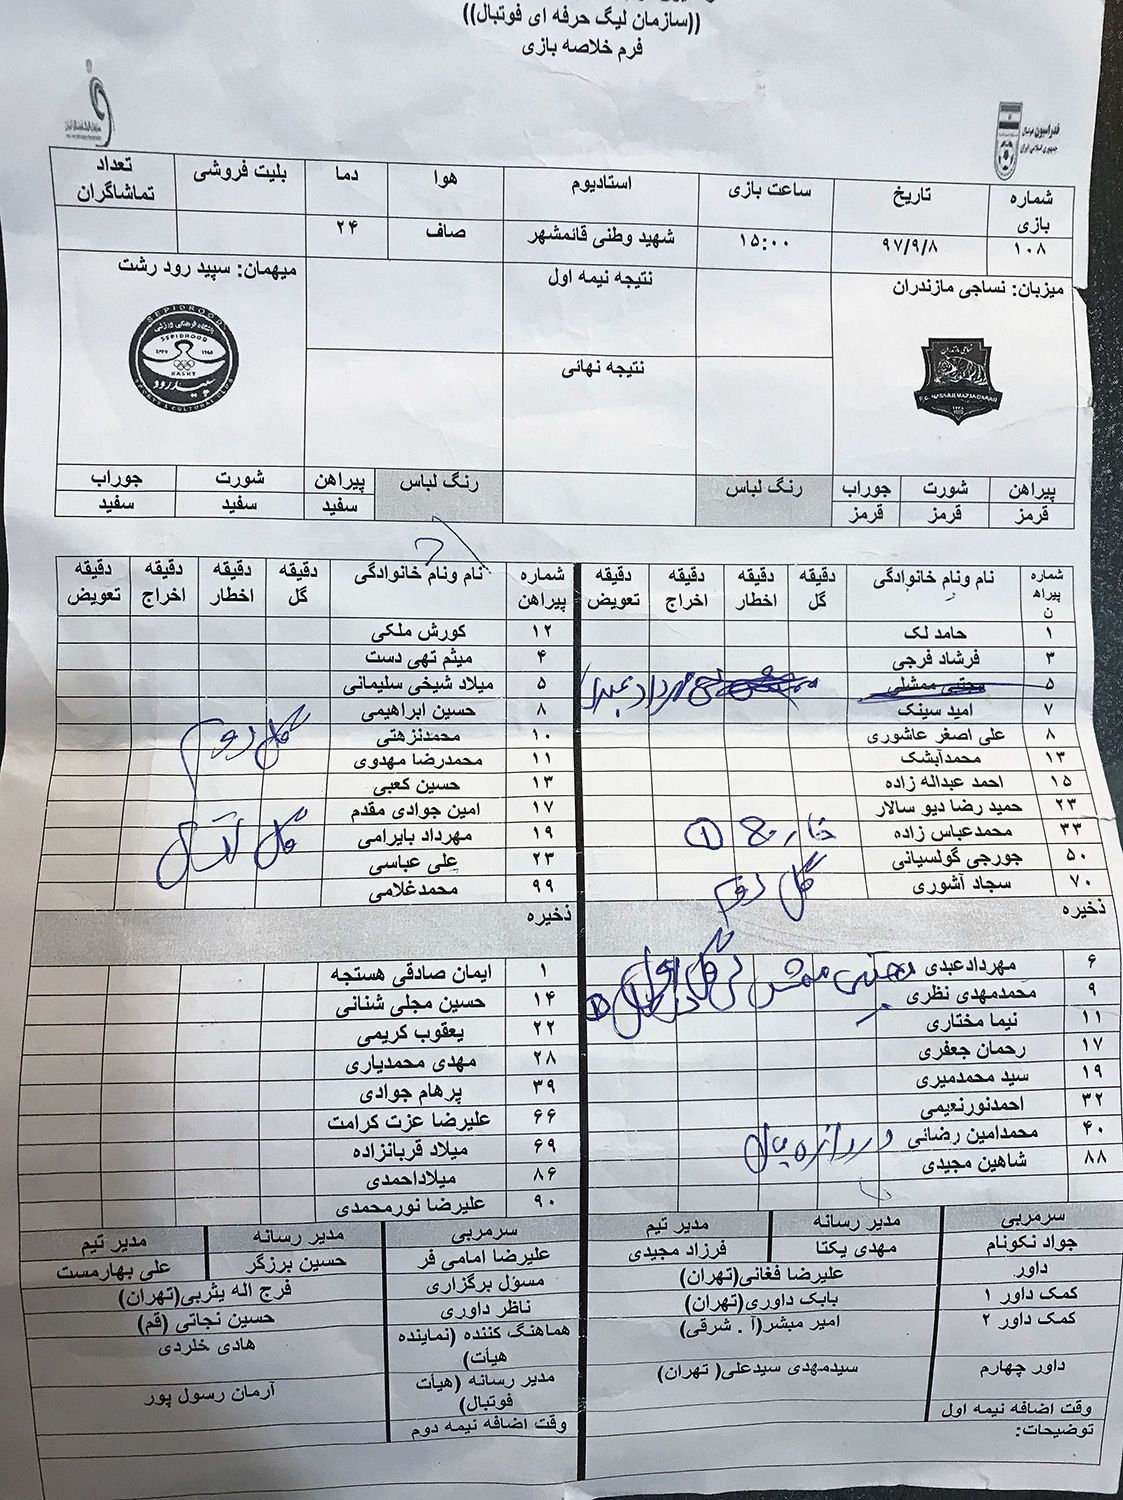 ((سازمان لیگ حرفه ای فوتبال))
فرم خلاصه بازی
فدراسیون فوتبال
جمهوری اسلامی ایران
شماره بازی تاریخ ساعت بازی استادیوم هوا دما بلیت فروشی تعداد تماشاگران
۱۰۸ ۹۷/۹/۸ ۱۵:۰۰ شهید وطنی قائمشهر صاف ۲۴
میزبان: نساجی مازندران نتیجه نیمه اول میهمان: سپید رود رشت
نتیجه نهائی
SEPIDROOD
باشگاه فرهنگی ورزشی
SEPIDROOD
RASHT
سپیدرود
پیراهن شورت جوراب رنگ لباس رنگ لباس پیراهن شورت جوراب
قرمز قرمز قرمز سفید سفید سفید
شماره پیراه ن نام ونام خانوادگی دقیقه گل دقیقه اخطار دقیقه اخراج دقیقه تعویض شماره پیراهن نام ونام خانوادگی دقیقه گل دقیقه اخطار دقیقه اخراج دقیقه تعویض
۱ حامد لک ۱۲ کورش ملکی
۳ فرشاد فرجی ۴ میثم تهی دست
۵ مجتبی ممشلی ۵ میلاد شیخی سلیمانی
۷ امید سینک ۸ حسین ابراهیمی
۸ علی اصغر عاشوری ۱۰ محمدنزهتی گل دوم
۱۳ محمدآبشک ۱۱ محمدرضا مهدوی
۱۵ احمد عبداله زاده ۱۳ حسین کعبی
۲۳ حمید رضا دیو سالار ۱۷ امین جوادی مقدم
۳۳ محمدعباس زاده خارج ۱ ۱۹ مهرداد بایرامی گل
۵۰ جورجی گولسیانی ۲۳ علی عباسی
۷۰ سجاد آشوری گل دوم ۹۹ محمدغلامی
ذخیره ذخیره
۶ مهردادعبدی ۱ ایمان صادقی هستجه
۹ محمدمهدی نظری ۱۴ حسین مجلی شنانی
۱۱ نیما مختاری ۲۲ یعقوب کریمی
۱۷ رحمان جعفری ۲۸ مهدی محمدیاری
۱۹ سید محمدمیری ۳۹ پرهام جوادی
۳۲ احمدنورنعیمی ۶۶ علیرضا عزت کرامت
۴۰ محمدامین رضائی دروازه بان ۶۹ میلاد قربانزاده
۸۸ شاهین مجیدی ۸۶ میلاداحمدی
۹۰ علیرضا نورمحمدی
سرمربی مدیر رسانه مدیر تیم سرمربی مدیر رسانه مدیر تیم
جواد نکونام مهدی یکتا فرزاد مجیدی علیرضا امامی فر حسین برزگر علی بهارمست
داور علیرضا فغانی(تهران) مسؤل برگزاری فرج اله یثربی(تهران)
کمک داور ۱ بابک داوری(تهران) ناظر داوری حسین نجاتی (قم)
کمک داور ۲ امیر مبشر(آ . شرقی) هماهنگ کننده (نماینده هیأت) هادی خلردی
داور چهارم سیدمهدی سیدعلی( تهران) مدیر رسانه (هیأت فوتبال) آرمان رسول پور
وقت اضافه نیمه اول وقت اضافه نیمه دوم
توضیحات: